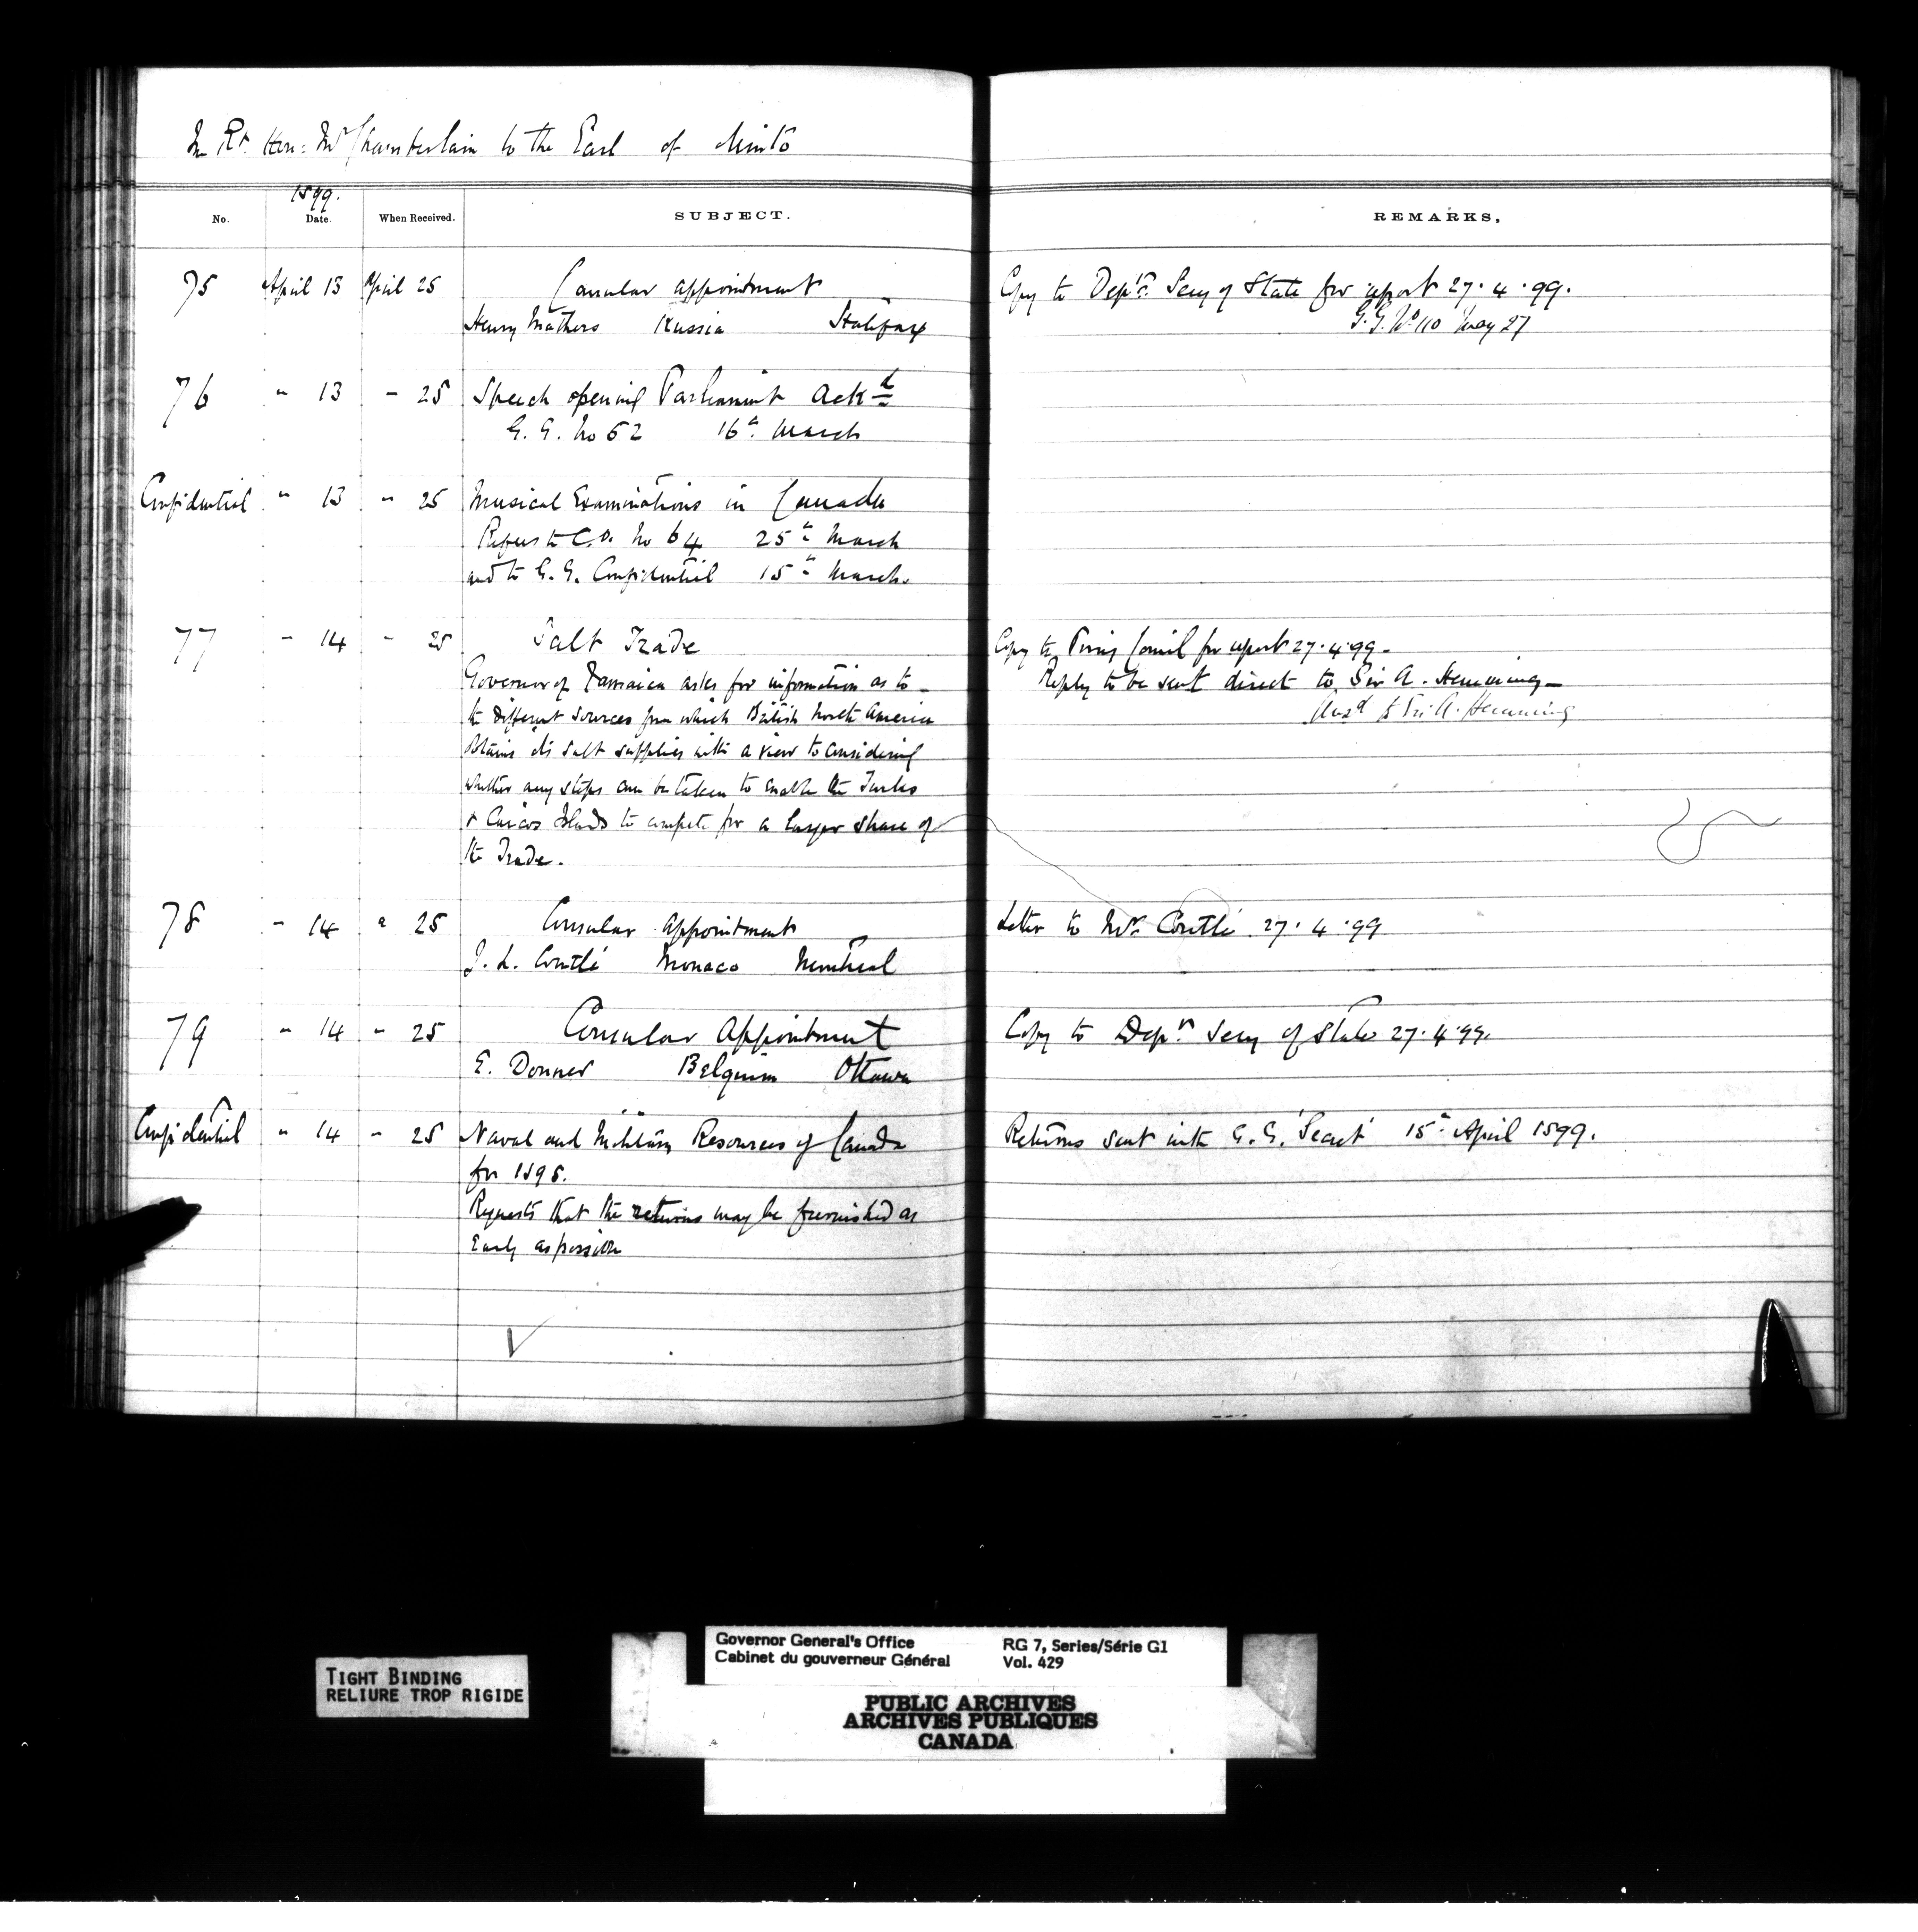 The Rt. Hon: Mr Chamberlain to the Earl of Minto
1899.
No. Date. When Received. SUBJECT. REMARKS.
75 April 13 April 25 Consular appointment Copy to Dept. Secy of State for report 27.4.99.
Henry Mathers Russia Halifax G.G. No 110 May 27
76 " 13 " 25 Speech opening Parliament Ackd
G.G. No 52 16th March
Confidential " 13 " 25 Musical Examinations in Canada
Refers to C.O. No 64 25th March
and to G.G. Confidential 15th March.
77 " 14 " 25 Salt Trade Copy to Privy Council for report 27.4.99.
Governor of Jamaica asks for information as to Reply to be sent direct to Sir A. Hemming
the different sources from which British North America to Sir A. Hemming
obtains its salt supplies with a view to considering
whether any steps can be taken to enable the Turks
& Caicos Islands to compete for a larger share of
the Trade.
78 " 14 " 25 Consular Appointment Letter to Mr. Coutlé 27.4.99
J. L. Coutlé Monaco Montreal
79 " 14 " 25 Consular Appointment Copy to Depy. Secy of State 27.4.99.
E. Donner Belgium Ottawa
Confidential " 14 " 25 Naval and Military Resources of Canada Returns sent with G.G. 'Secret' 15th April 1899.
for 1898.
Requests that the returns may be furnished as
Early as possible
TIGHT BINDING
RELIURE TROP RIGIDE
Governor General's Office RG 7, Series/Série G1
Cabinet du gouverneur Général Vol. 429
PUBLIC ARCHIVES
ARCHIVES PUBLIQUES
CANADA